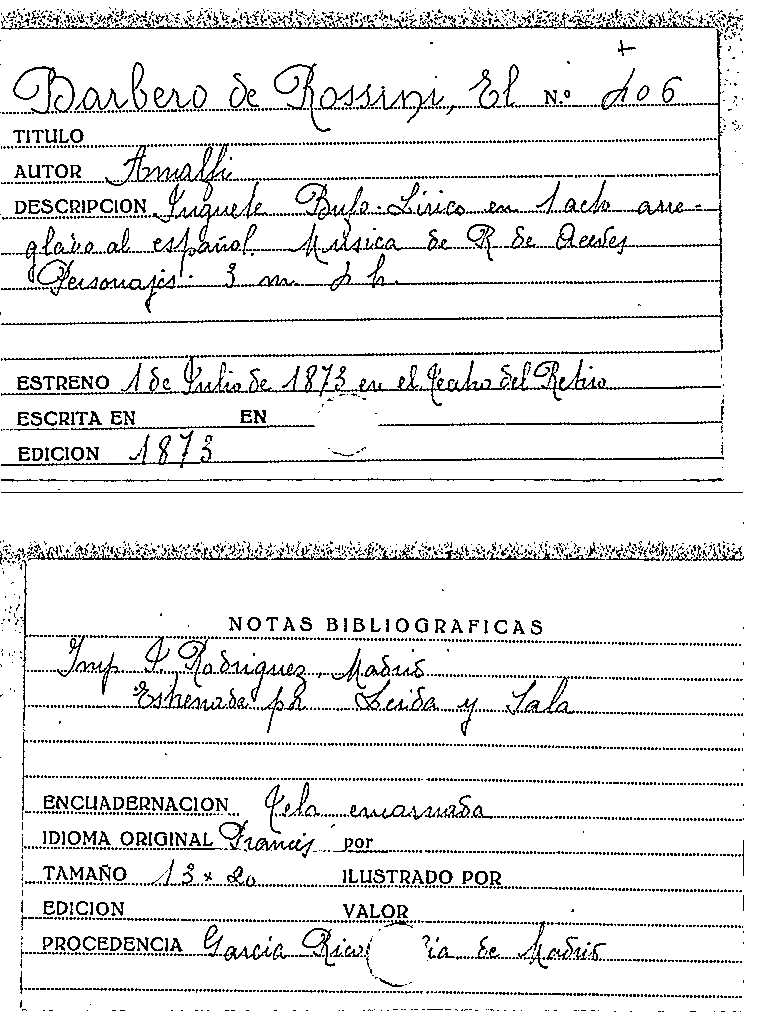 Barbero de Rossini, El N.º 406
TITULO
AUTOR Amalfi
DESCRIPCION Juguete Bufo-Lírico en 1 acto arre-
glado al español. Musica de R de Aceves
Personajes: 3 m. 2 h.
ESTRENO 1 de Julio de 1873 en el Teatro del Retiro
ESCRITA EN EN
EDICION 1873
NOTAS BIBLIOGRAFICAS
Imp. Rodriguez, Madrid
Estrenada por y Sala
ENCUADERNACION Tela encarnada
IDIOMA ORIGINAL Francés por
TAMAÑO 13 x 20 ILUSTRADO POR
EDICION VALOR
PROCEDENCIA Garcia Rico ia de Madrid